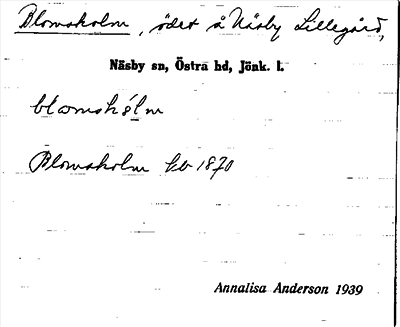 Blomsholm, ödet å Näsby Lillegård,
Näsby sn, Östra hd, Jönk. l.
blomshólm
Blomsholm kb 1870
Annalisa Anderson 1939